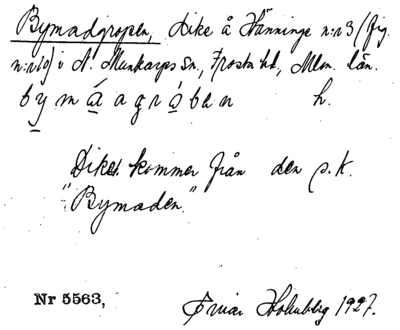 Bymadgropen, Dike å Hänninge n:r 3 (fig.
n:r 10) i N. Munkarps sn., Frosta hd, Mlm. län.
b y m a a g r o b e n h.
Diket kommer från den s.k.
"Bymaden."
Nr 5563, Holmberg 1927.